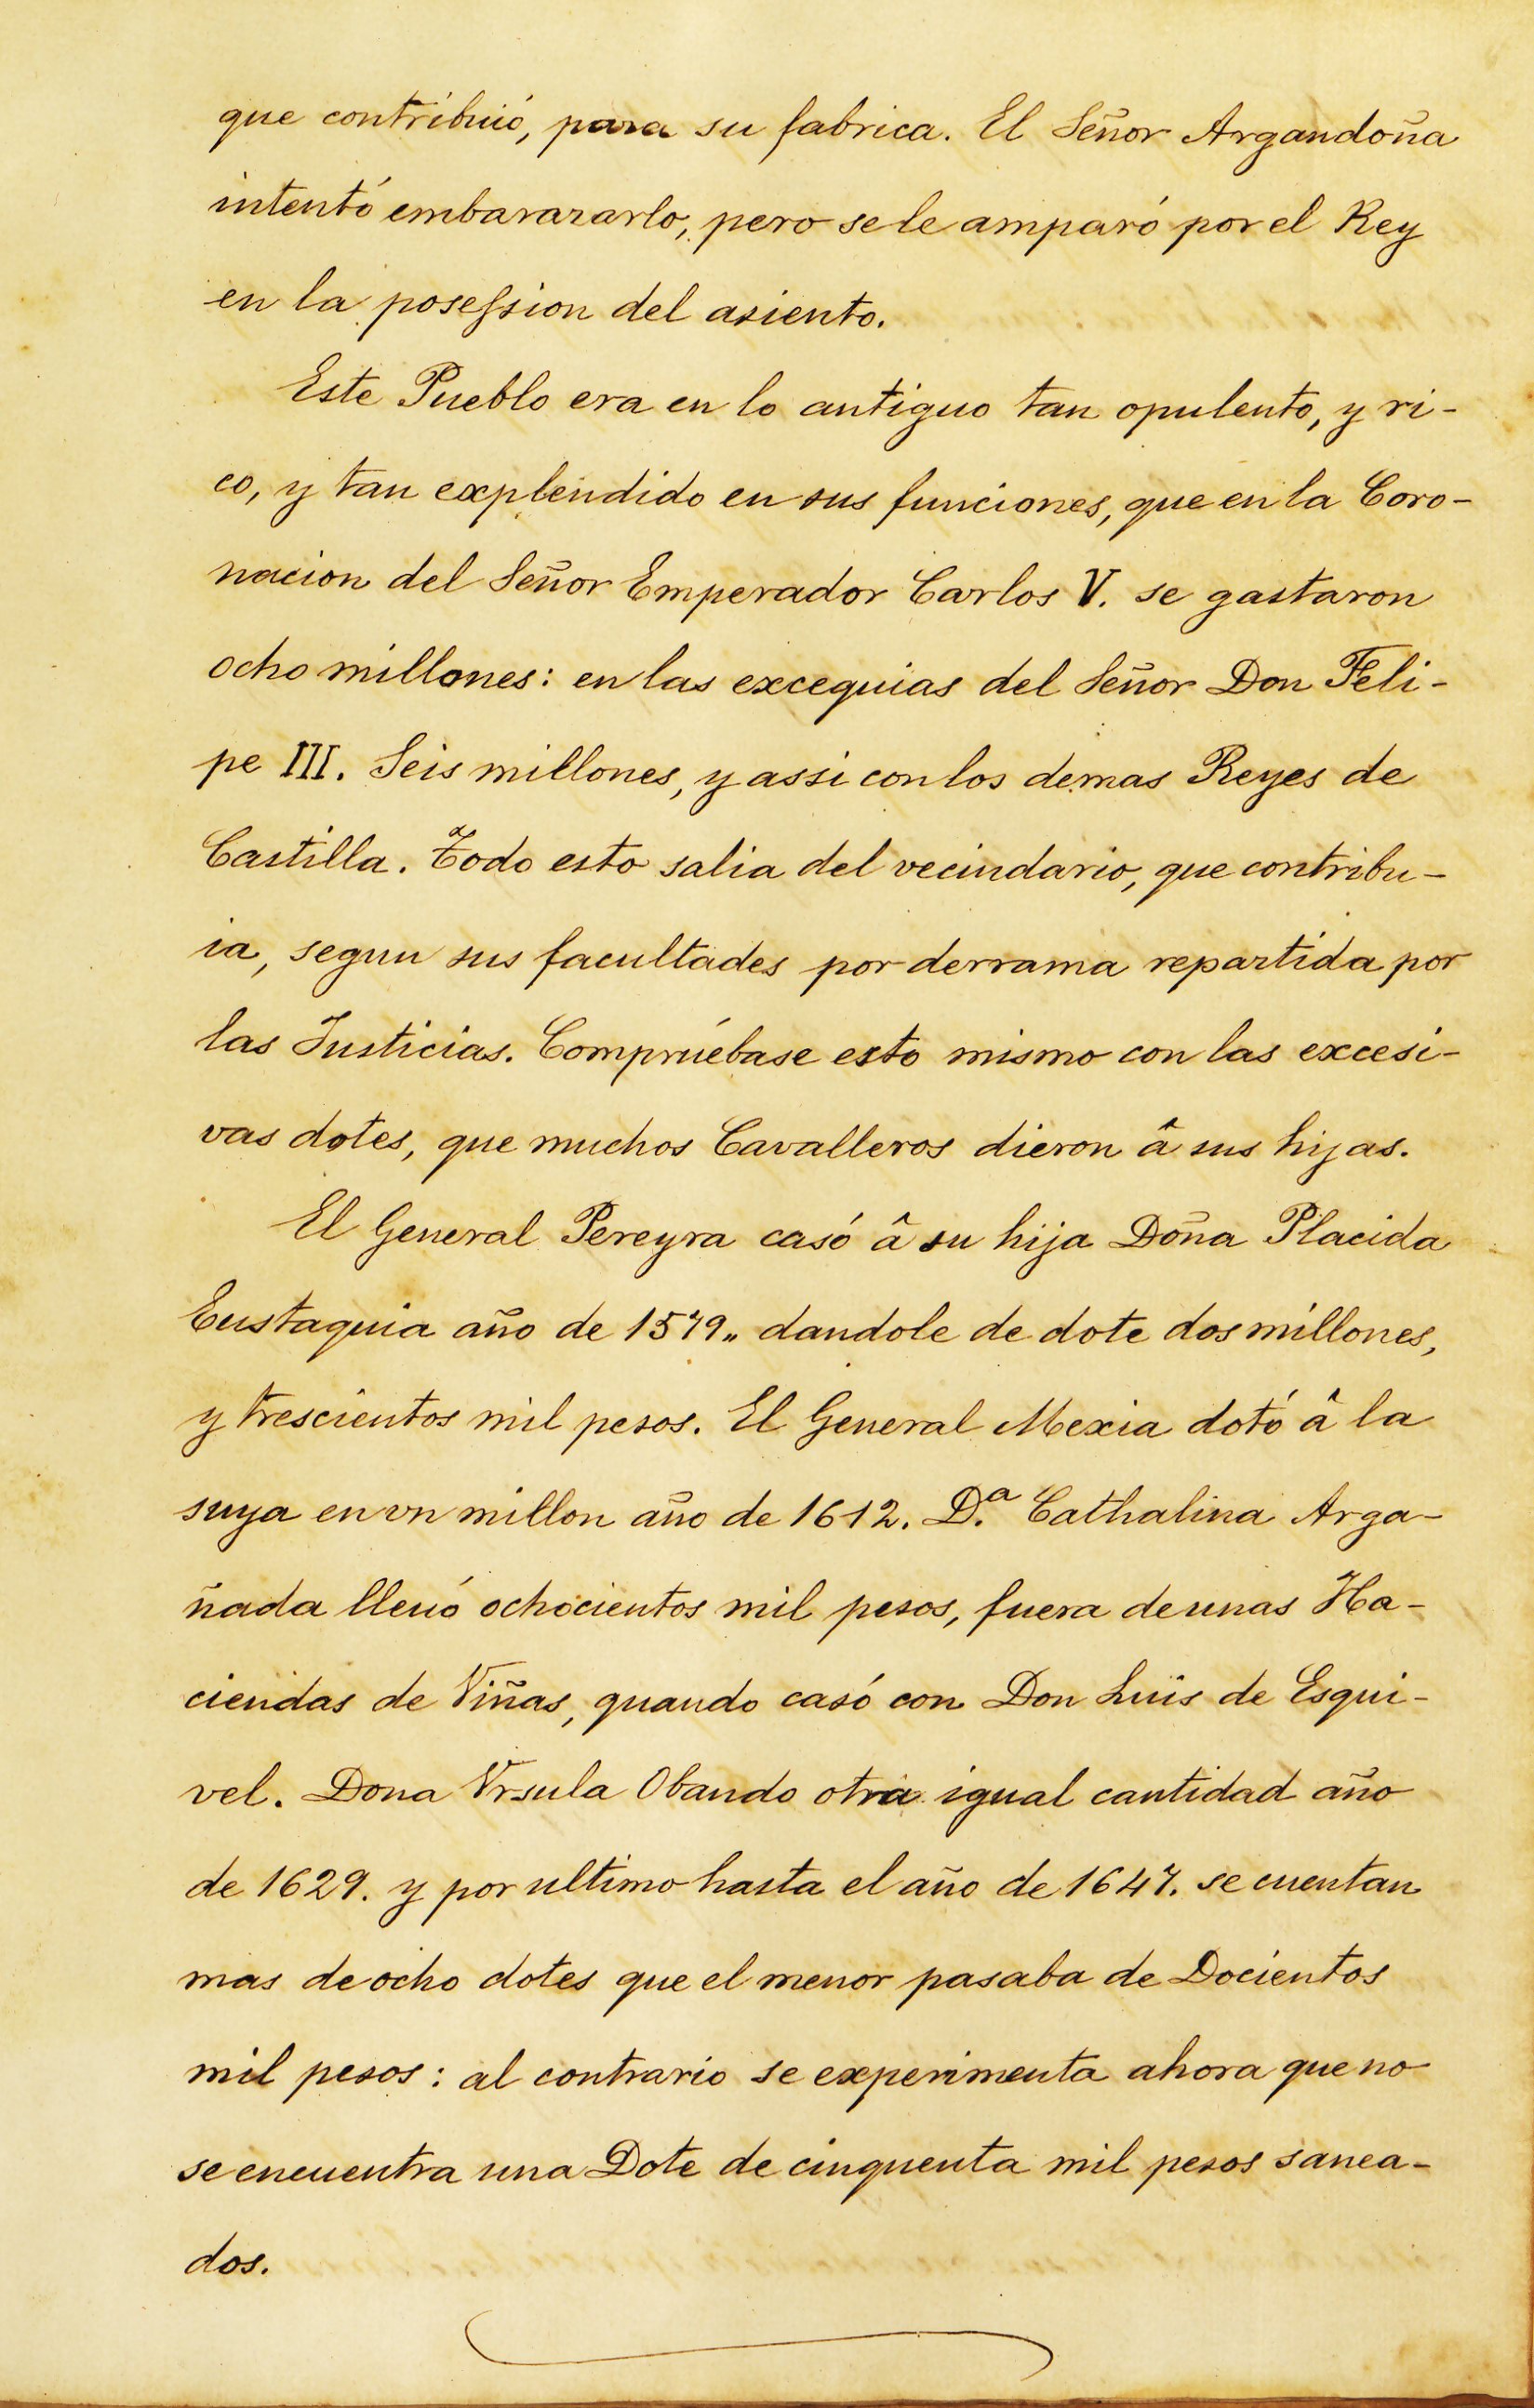 que contribuió, para su fabrica. El Señor Argandoña
intentó embarazarlo, pero se le amparó por el Rey
en la posession del asiento.
Este Pueblo era en lo antiguo tan opulento, y ri-
co, y tan explendido en sus funciones, que en la Coro-
nacion del Señor Emperador Carlos V. se gastaron
ocho millones: en las excequias del Señor Don Feli-
pe III. Seis millones, y assi con los demas Reyes de
Castilla. Todo esto salia del vecindario, que contribu-
ia, segun sus facultades por derrama repartida por
las Justicias. Compruébase esto mismo con las excesi-
vas dotes, que muchos Cavalleros dieron â sus hijas.
El General Pereyra casó â su hija Doña Placida
Eustaquia año de 1579„ dandole de dote dos millones,
y trescientos mil pesos. El General Mexia dotó â la
suya en vn millon año de 1612. D.ª Cathalina Arga-
ñada lleuó ochocientos mil pesos, fuera de unas Ha-
ciendas de Viñas, quando casó con Don Luis de Esqui-
vel. Dona Vrsula Obando otra igual cantidad año
de 1629. y por ultimo hasta el año de 1647. se cuentan
mas de ocho dotes que el menor pasaba de Docientos
mil pesos: al contrario se experimenta ahora que no
se encuentra una Dote de cinquenta mil pesos sanea-
dos.